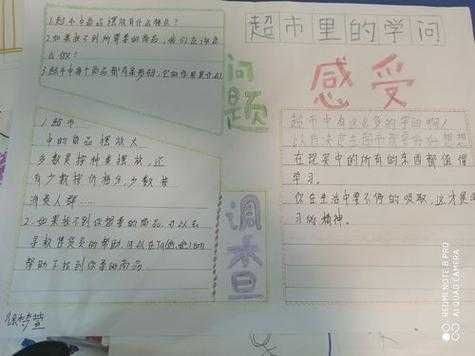 超市里的学问
1.超市中商品摆放有什么特点?
2.如果找不到所需要的商品,我们应该怎
么做?
3.超市中每个商品都有条形码,它的作用是什么
问题
感受
1.超市
中的商品摆放大
多数是按种类摆放,还
有少数按价格分,少数按
消费人群……
2.如果找不到你需要的商品,可以去
寻求售货员的帮助,可以在TA(他,她)的
帮助下找到你要的商品.
调查
超市中有这么多的学问啊!
以后决定去超市
在现实中的所有的东西都值得
学习。
你在生活中要不停的吸取,这才是学
习的精神。
REDMI NOTE 8 PRO
AI QUAD CAMERA